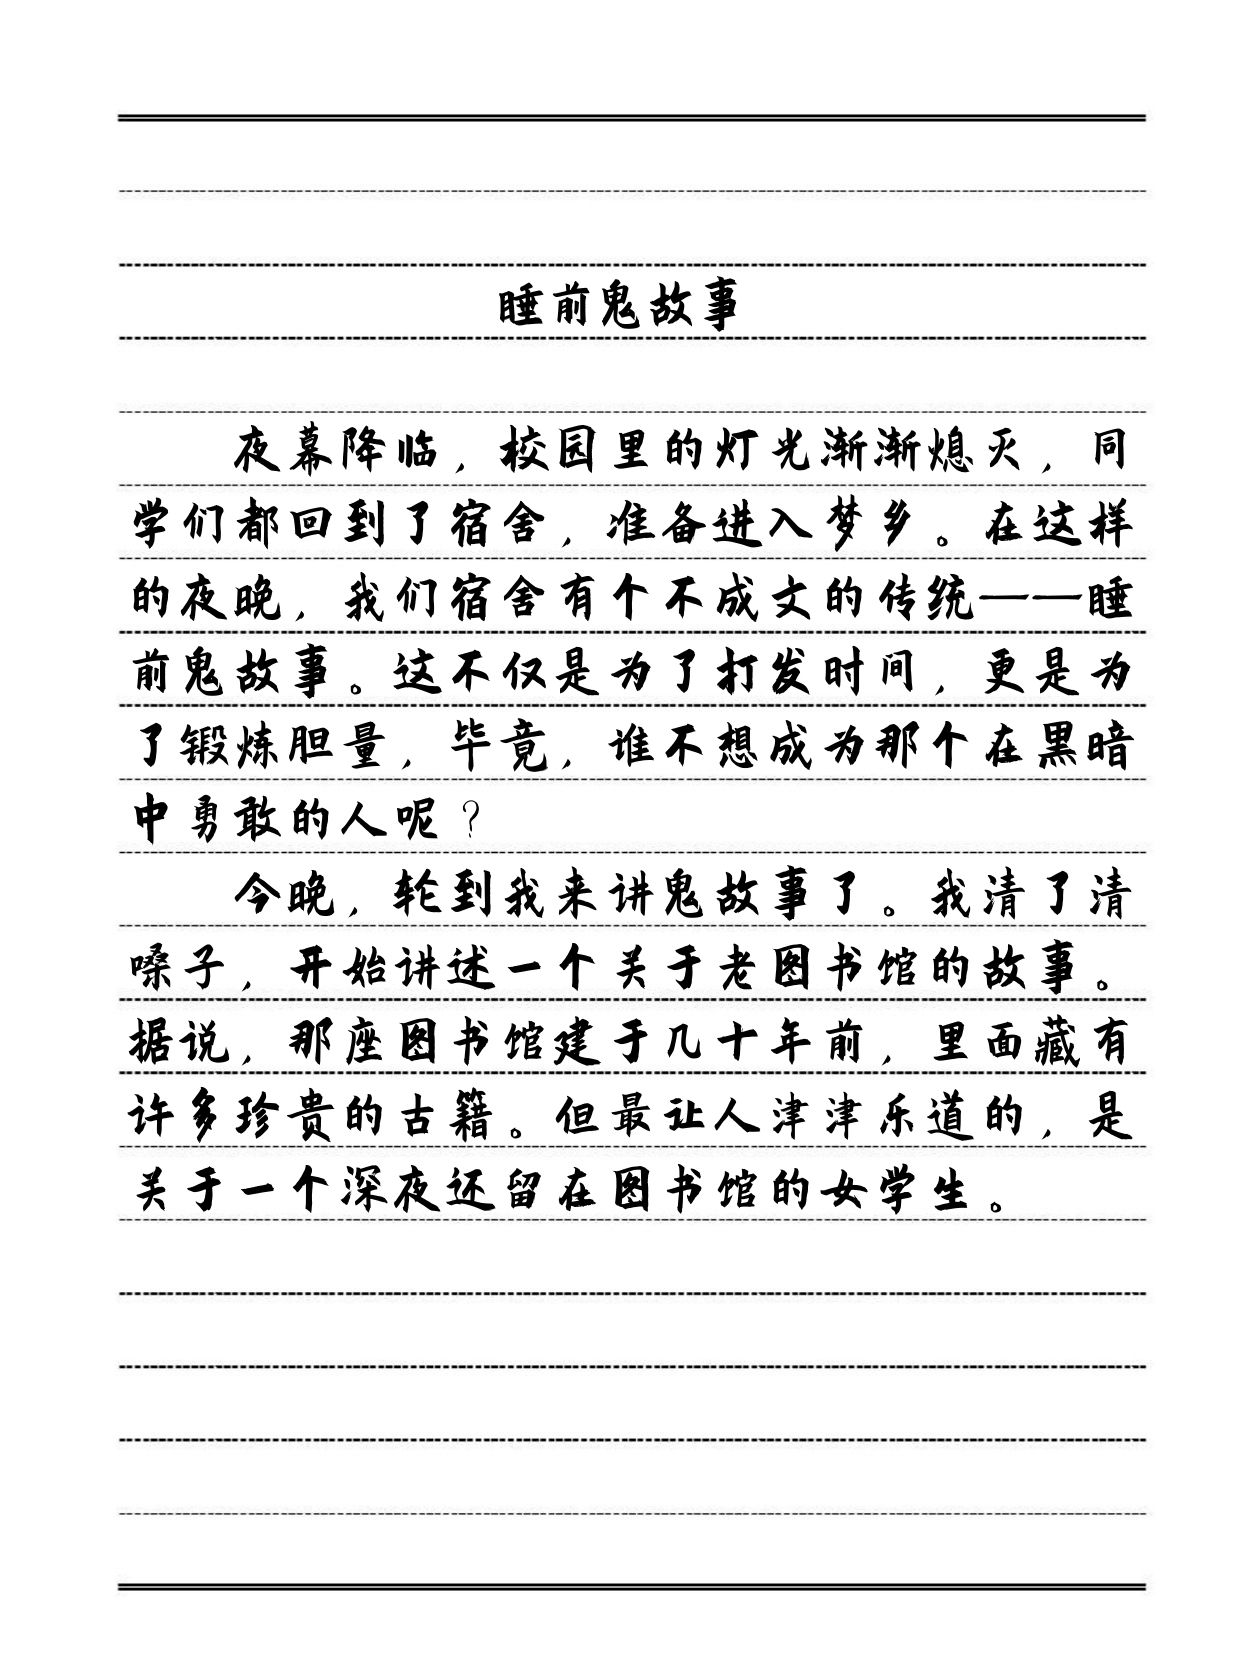 睡前鬼故事
夜幕降临，校园里的灯光渐渐熄灭，同
学们都回到了宿舍，准备进入梦乡。在这样
的夜晚，我们宿舍有个不成文的传统——睡
前鬼故事。这不仅是为了打发时间，更是为
了锻炼胆量，毕竟，谁不想成为那个在黑暗
中勇敢的人呢？
今晚，轮到我来讲鬼故事了。我清了清
嗓子，开始讲述一个关于老图书馆的故事。
据说，那座图书馆建于几十年前，里面藏有
许多珍贵的古籍。但最让人津津乐道的，是
关于一个深夜还留在图书馆的女学生。